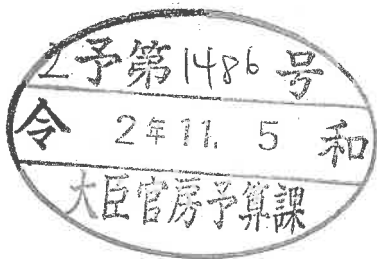 2予第1486号
令 2年11.5 和
大臣官房予算課